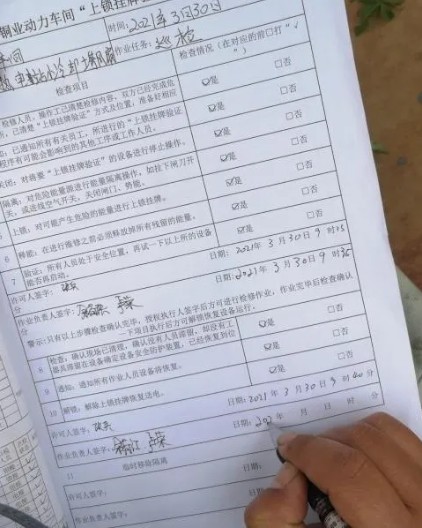 铜业动力车间“上锁挂牌
时间:2021年3月30日
作业任务:巡检
检查项目
检查情况(在对应的前□打“√”)
检修人员、操作工已清楚检修内容,双方已经完成危
,已清楚“上锁挂牌验证”方式及位置,准备好相应
☑是 □否
:已通知所有有关员工,所进行的“上锁挂牌验证
程序有可能会影响到的其他工序或工作人员。
☑是 □否
关闭:对需要“上锁挂牌验证”的设备进行停止操作。
☑是 □否
隔离:对危险能量源进行能量隔离操作,如拉下闸刀开
关,或连线空气开关,关闭阀门、售能。
☑是 □否
5 上锁:对可能产生危险的能量进行上锁挂牌。
☑是 □否
6 释能:在进行维修之前必须释放出掉所有残留的能量。
☑是 □否
7 验证:所有人员处于安全位置,再试一下以上所的设备
能否再启动。
☑是 □否
许可人签字:
日期:2021年3月30日9时25
分
作业负责人签字:
日期:2021年3月30日9时35
分
警示:只有以上步骤检查确认完毕,授权执行人签字后方可进行检修作业,作业完毕后检查确认
一下项目执行后方可解锁恢复设备运行。
8 检查:确认现场已清理,确认没有人员滞留,却没有工
器具滞留在设备确定设备安全防护装置,已经恢复到位
☑是 □否
9 通知:通知所有作业人员设备将恢复。
☑是 □否
10 解锁:解除上锁挂牌恢复送电。
☑是 □否
许可人签字:
日期:2021年3月30日9时40分
作业负责人签字:
日期:202 年 月 日 时 分
11 临时移除隔离
许可人签字:
日期:
作业负责人签字:
日期: